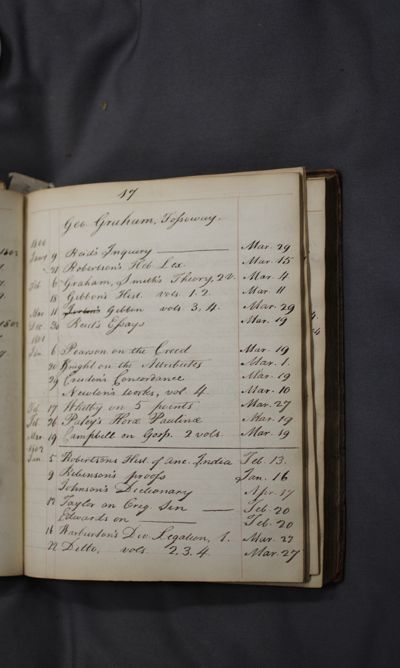 47
Geo. Graham, Fossoway.
1800
Jany 9 Reid's Inquiry Mar. 29
21 Robertson's Heb. Lex. Mar. 15
Feb. 6 Graham, Smith's Theory, 2 v. Mar. 4
18 Gibbon's Hist. vols. 1. 2. Mar. 11
Mar. 11 Gibbon vols. 3. 4. Mar. 29
Dec. 30 Reid's Essays Mar. 19
1801
Jan. 6 Pearson on the Creed Mar. 19
20 Knight on the Attributes Mar. 1.
29 Cruden's Concordance Mar. 19
Newton's works, vol. 4. Mar. 10
Feb. 17 Whitby on 5 points Mar. 27
Feb. 26 Paley's Horæ Paulinæ Mar. 19
Mar. 19 Campbell on Gosp. 2 vols. Mar. 19
1802
Jan. 5 Robertson's Hist. of anc. India Feb. 13.
9 Robinson's proofs Jan. 16
Johnson's Dictionary Apr. 17
12 Taylor on Orig. Sin Feb. 20
Edwards on Feb. 20
16 Warburton's Div. Legation, 1. Mar. 27
22 Ditto, vols. 2. 3. 4. Mar. 27